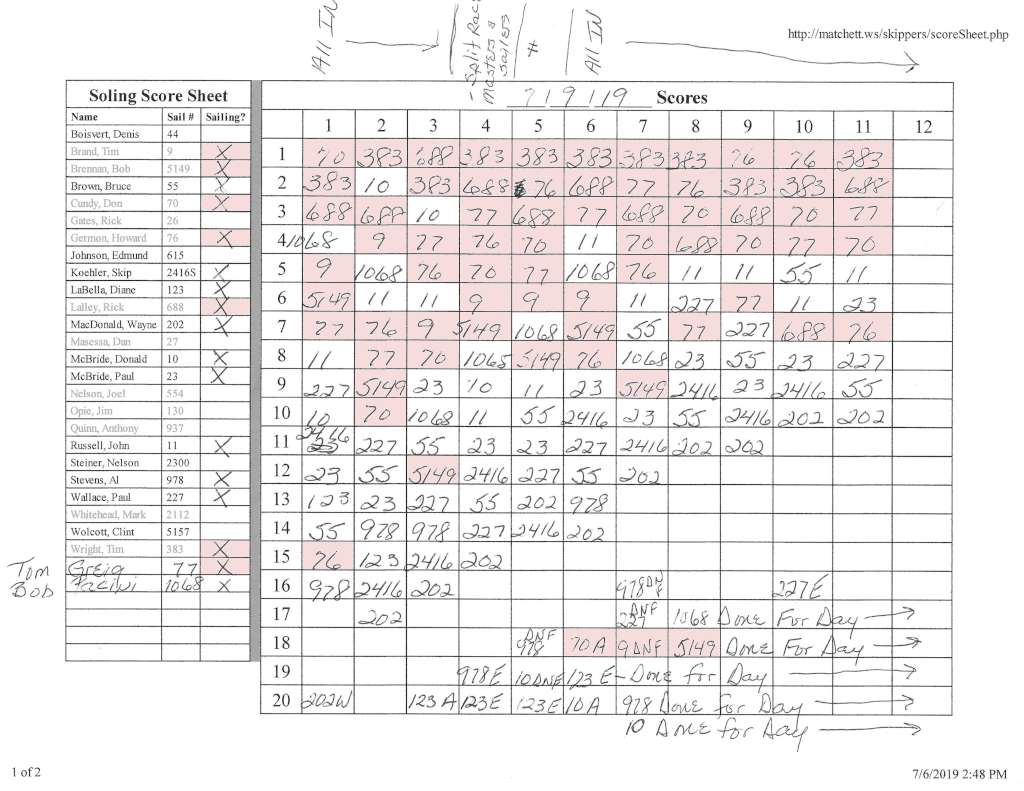 All IN
- Split Rac
Masters &
Sailers
#
All IN
http://matchett.ws/skippers/scoreSheet.php
Soling Score Sheet
7/9/19 Scores
Name Sail # Sailing?
Boisvert, Denis 44
Brand, Tim 9 X
Brennan, Bob 5149 X
Brown, Bruce 55 X
Cundy, Don 70 X
Gates, Rick 26
Germon, Howard 76 X
Johnson, Edmund 615
Koehler, Skip 2416S X
LaBella, Diane 123 X
Lalley, Rick 688 X
MacDonald, Wayne 202 X
Masessa, Dan 27
McBride, Donald 10 X
McBride, Paul 23 X
Nelson, Joel 554
Opie, Jim 130
Quinn, Anthony 937
Russell, John 11 X
Steiner, Nelson 2300
Stevens, Al 978 X
Wallace, Paul 227 X
Whitehead, Mark 2112
Wolcott, Clint 5157
Wright, Tim 383 X
Tom Greig 77 X
Bob Pacini 1068 X
1 2 3 4 5 6 7 8 9 10 11 12
1 70 383 688 383 383 383 383 383 76 76 383
2 383 10 383 688 76 688 77 76 383 383 688
3 688 688 10 77 688 77 688 70 688 70 77
4 1068 9 77 76 70 11 70 688 70 77 70
5 9 1068 76 70 77 1068 76 11 11 55 11
6 5149 11 11 9 9 9 11 227 77 11 23
7 77 76 9 5149 1068 5149 55 77 227 688 76
8 11 77 70 1068 5149 76 1068 23 55 23 227
9 227 5149 23 10 11 23 5149 2416 23 2416 55
10 10 70 1068 11 55 2416 23 55 2416 202 202
11 2416 227 55 23 23 227 2416 202 202
12 23 55 5149 2416 227 55 202
13 123 23 227 55 202 978
14 55 978 978 227 2416 202
15 76 123 2416 202
16 978 2416 202 978 DNF 227E
17 202 227 DNF 1068 Done For Day
18 978 DNF 70A 9DNF 5149 Done For Day
19 978E 10DNF 123E - Done for Day
20 202W 123A 123E 123E 10A 978 Done for Day
10 Done for Day
1 of 2
7/6/2019 2:48 PM